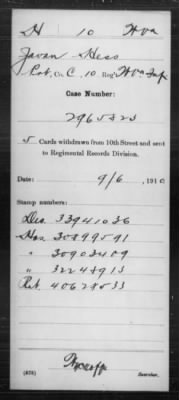 H 10 W Va
Javan Hess
Pvt, Co. C, 10 Reg't W Va Inf
Case Number:
2965823
5 Cards withdrawn from 10th Street and sent
to Regimental Records Division.
Date: 9/6, 191
Stamp numbers:
Des 33941036
Hos 30899591
" 30903409
" 32248913
Pvt. 40628533
(678) Searcher.